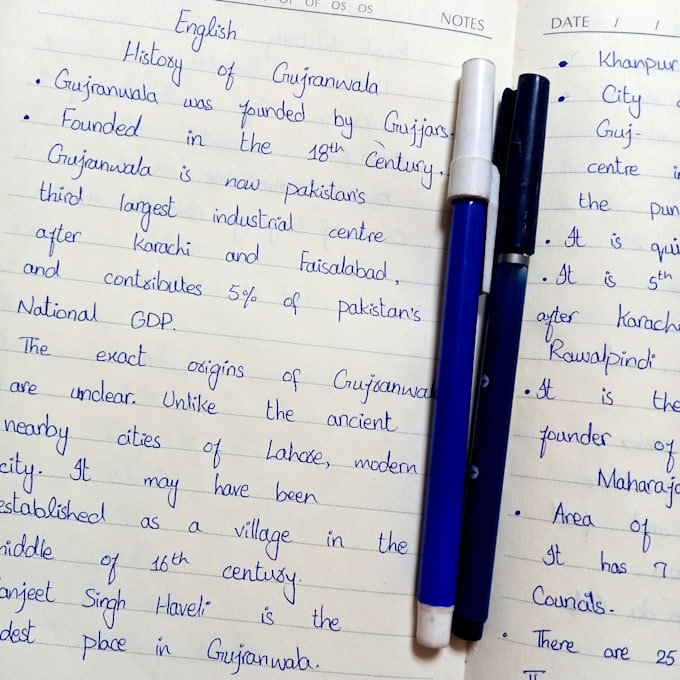 OS OS
NOTES
English
History of Gujranwala
• Gujranwala was founded by Gujjars.
• Founded in the 18th Century.
Gujranwala is now pakistan's
third largest industrial centre
after Karachi and Faisalabad,
and contributes 5% of pakistan's
National GDP.
The exact origins of
are unclear. Unlike the ancient
nearby cities of Lahore, modern
city. It may have been
established as a village in the
middle of 16th century.
Singh Haveli is the
place in Gujranwala.
DATE / /
• Khanpur
• City
Guj-
centre
the
• It is
• It is 5th
after
Rawalpindi
• It is the
founder of
• Area of
It has 7
Councils.
• There are 25